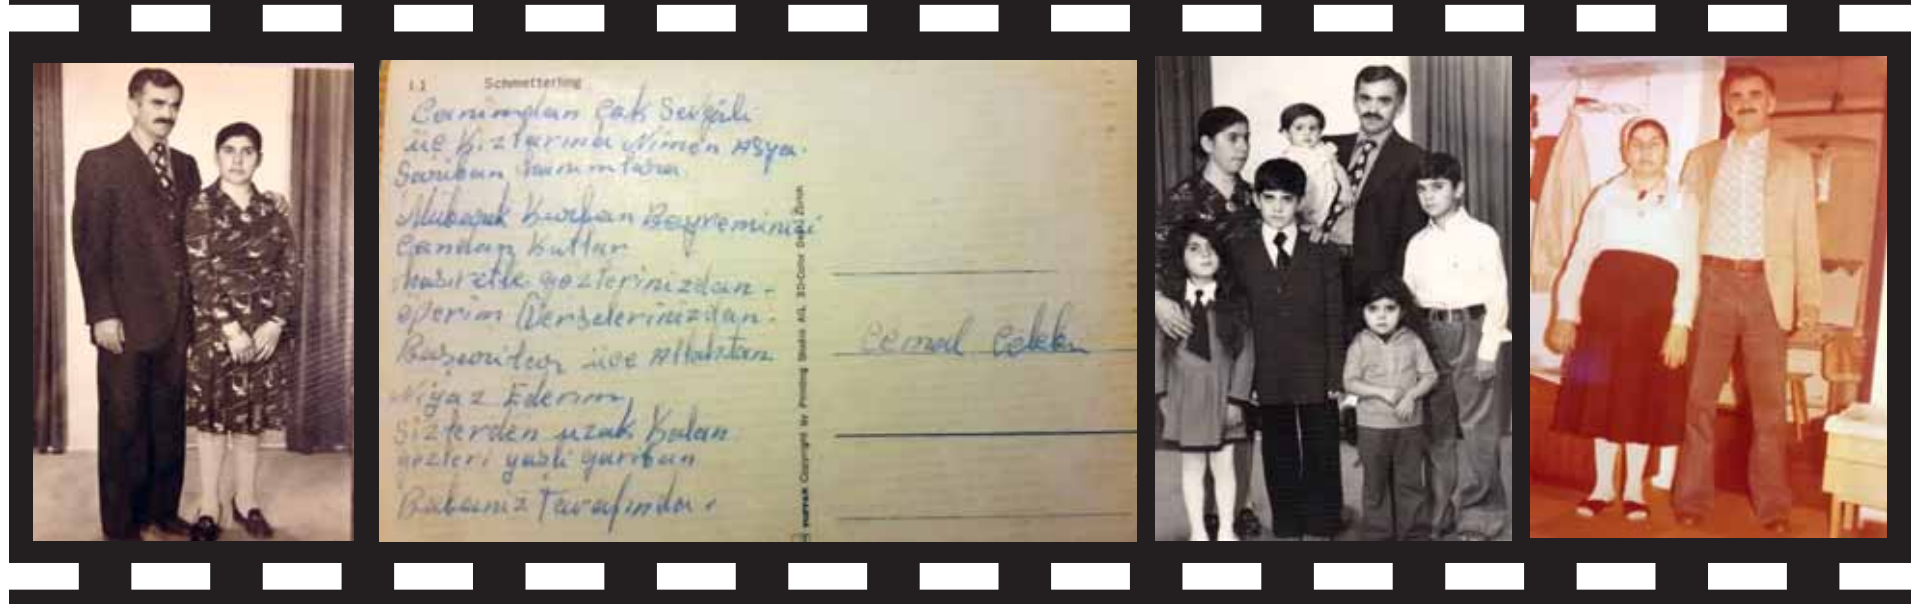 11 Schmetterling
Canımdan Çok Sevgili
üç Kızlarıma Nimen Asya
Sariban hanımlara
Mübarek Kurban Bayreminizi
Candan Kutlar
hasretle gözlerinizdan
öperim Derselerinizdan
üce Allahtan
Niyaz Ederim
Sizlerden uzak Kalan
gözleri yaşlı gariban
Babanız Tarafından
Copyright by Printing Studios AG, 3D-Color Dept. Zürich
Cemal